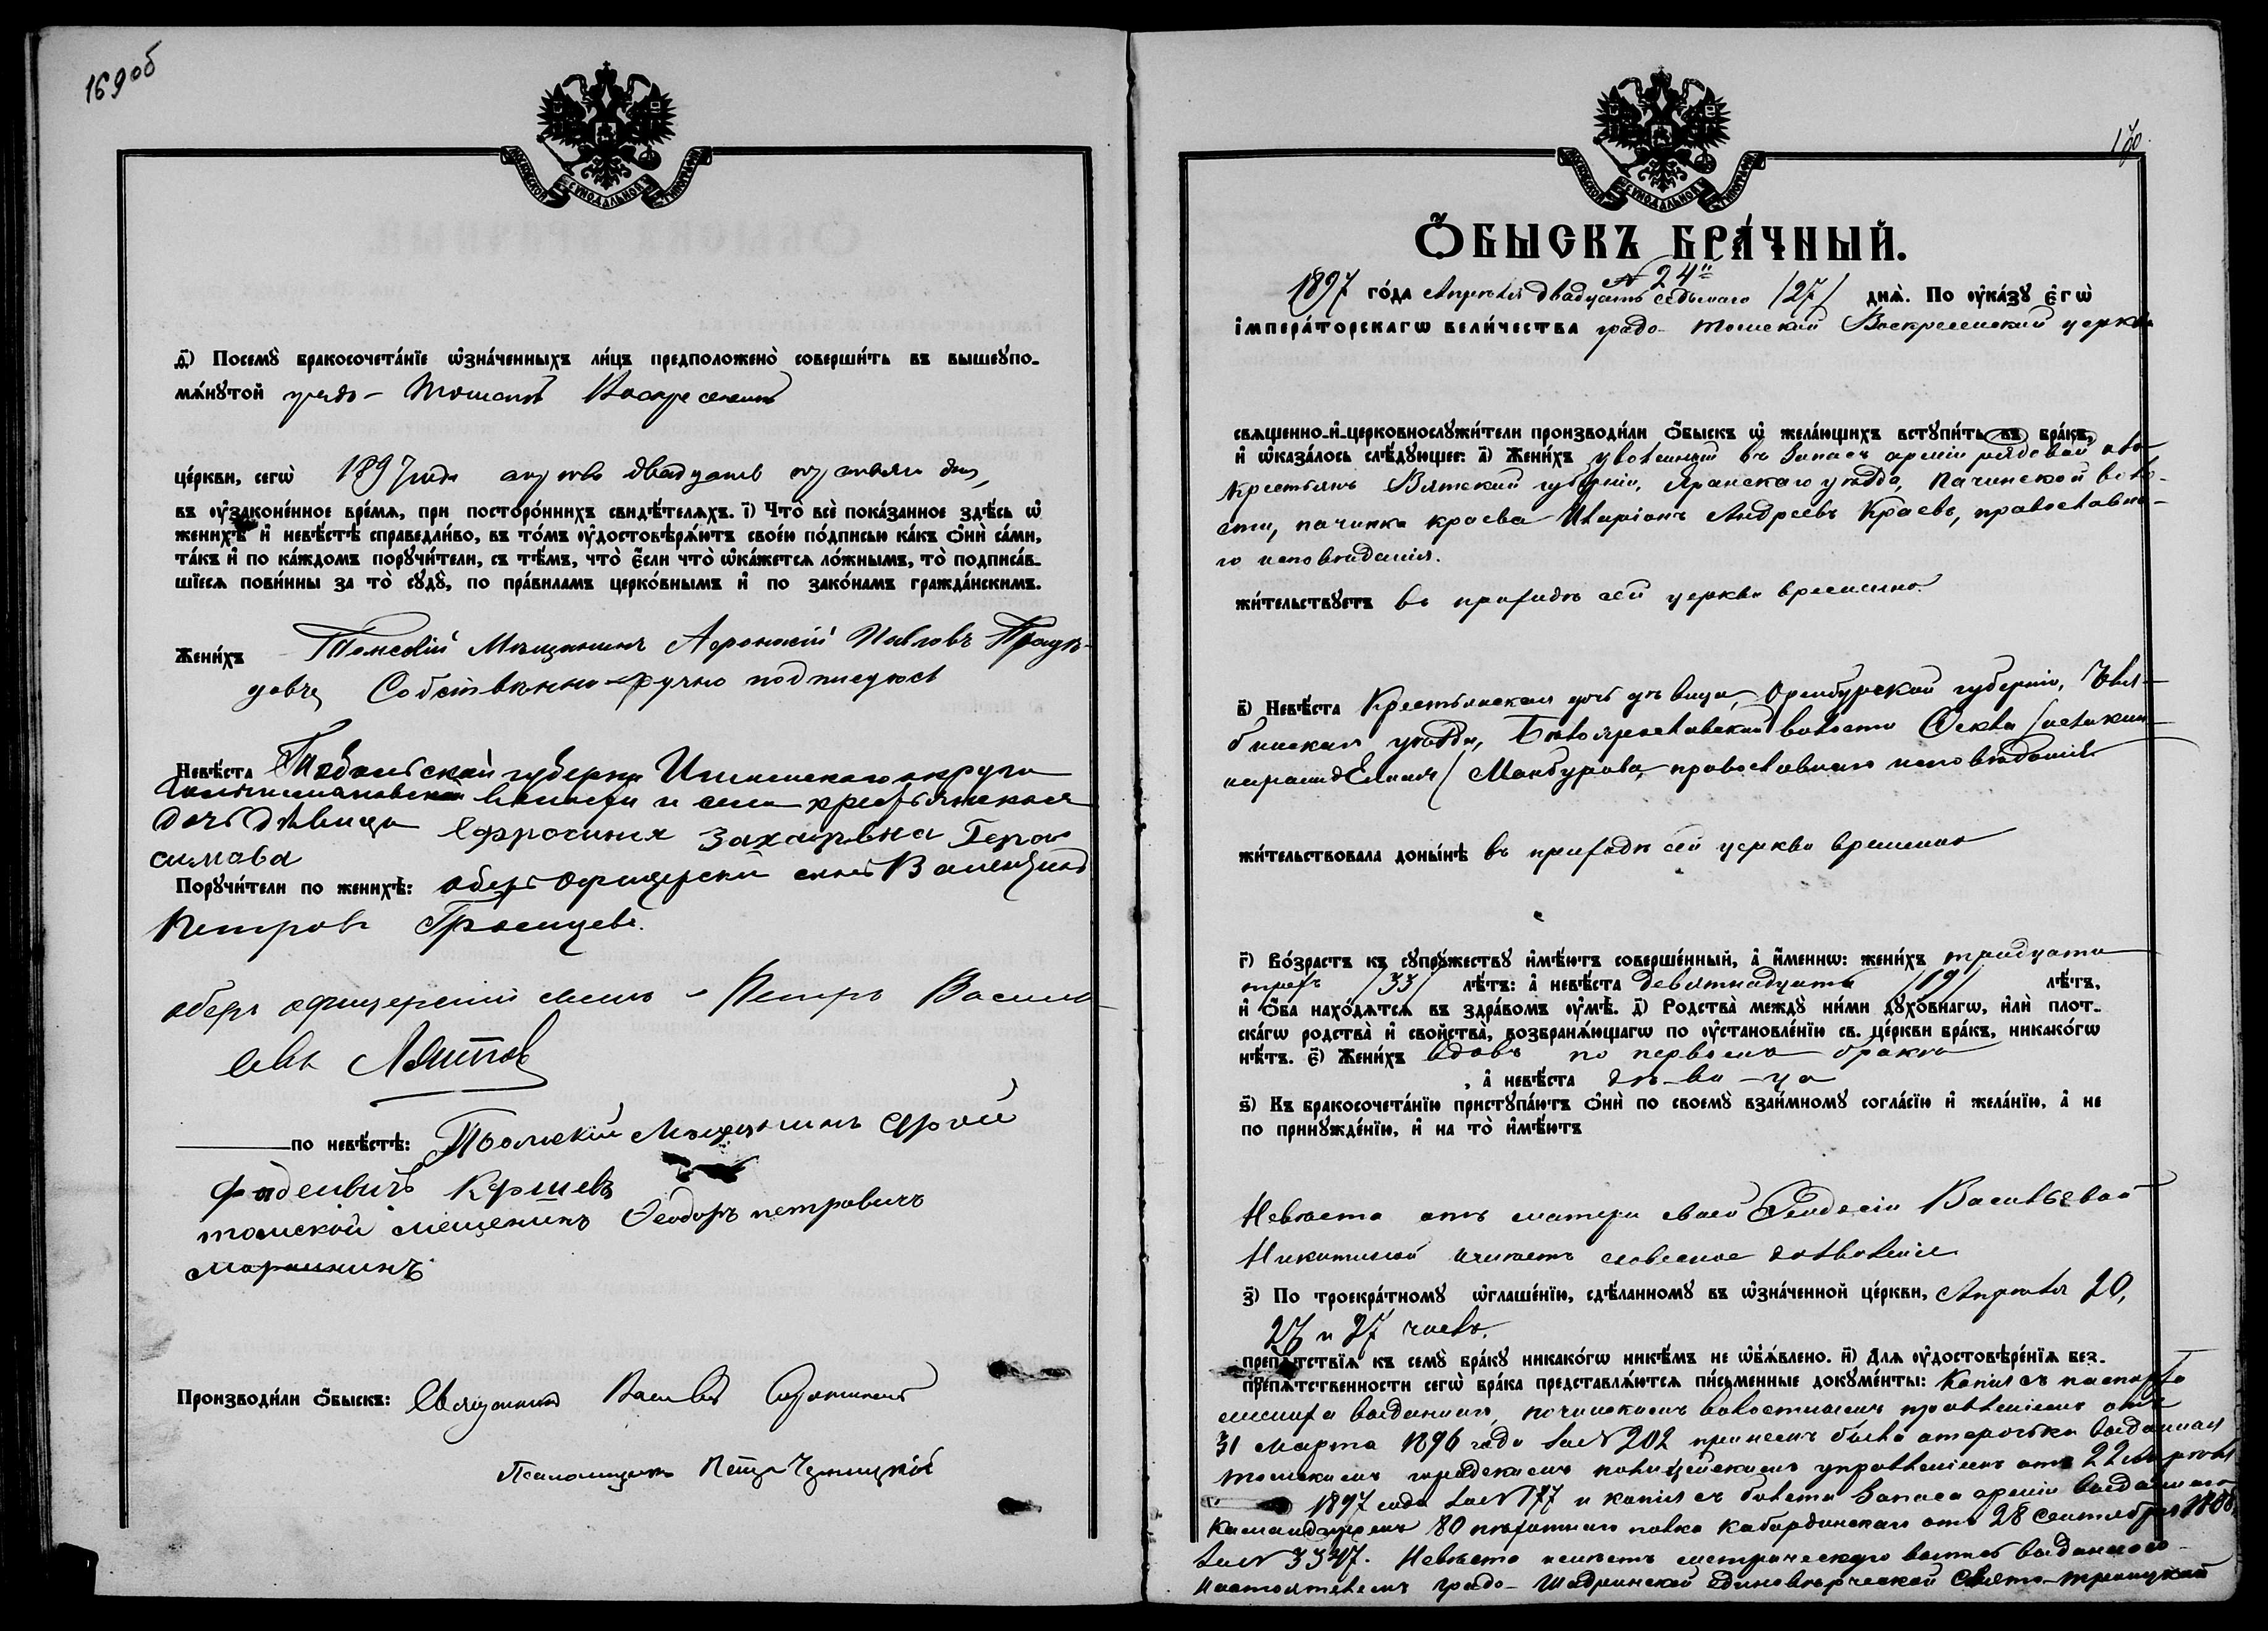 169об
МОСКОВСКОЙ СѴНОДАЛЬНОЙ ТИПОГРАФІИ
д҃і) Посемꙋ̀ бракосочета́нїе ѡ҆зна́ченныхъ ли́цъ предположено̀ соверши́ть въ вышеꙋпо-
мѧ́нꙋтой градо- Томской Воскресенской
це́ркви, сегѡ̀ 1897 года апрѣля двадцать дня,
въ ᲂу҆законе́нное вре́мѧ, при посторо́ннихъ свидѣ́телѧхъ. і҃) Что̀ всѐ пока́занное здѣ́сь ѡ҆
женихѣ̀ и҆ невѣ́стѣ справедли́во, въ то́мъ ᲂу҆достовѣрѧ́ютъ свое́ю по́дписью ка́къ ѻ҆нѝ са́ми,
та́къ и҆ по ка́ждомъ порꙋчи́тели, съ тѣ́мъ, что̀ є҆́сли что̀ ѡ҆ка́жется ло́жнымъ, то̀ подписа́в-
шїеся пови́нны за то̀ сꙋдꙋ̀, по пра́виламъ церко́внымъ и҆ по зако́намъ гражда́нскимъ.
Жени́хъ Томский Мѣщанинъ Афонасій Павловъ
Собственно-ручно подписуюсь
Невѣ́ста Тобольской губерни Ишимскаго округа
волости и села крестьянская
дочь дѣвица Ефросинія Захаровна Гера
симова
Порꙋчи́тели по женихѣ̀: оберъ офицерскій сынъ Валентинъ
Петровъ
оберъ офицерскій сынъ - Петръ Василь
евъ
по невѣ́стѣ: Томскій Мѣщанинъ
томской мещенинъ Феодоръ петровичъ
Производи́ли ѻ҆́быскъ: Священникъ Василій
Псаломщикъ Петръ
170.
МОСКОВСКОЙ СѴНОДАЛЬНОЙ ТИПОГРАФІИ
Ѻ҆́БЫСКЪ БРА́ЧНЫЙ.
№ 24
1897 го́да Апрѣля двадцать седьмаго /27/ днѧ̀. По ᲂу҆ка́зꙋ Є҆гѡ̀
І҆мпера́торскагѡ Вели́чества градо- Томской Воскресенской церкви
свѧщенно-и҆-церковнослꙋжи́тели производи́ли ѻ҆́быскъ ѡ҆ жела́ющихъ встꙋпи́ть въ бра́къ,
и҆ ѡ҆каза́лось слѣ́дꙋющее: а҃) Жени́хъ уволенный въ запасъ арміи рядовой изъ
крестьянъ Вятской губерніи, Яранскаго уѣзда, Пачинской воло-
сти, починка краева Иларіонъ Андреевъ Краевъ, православна-
го исповѣданія.
жи́тельствꙋетъ въ приходѣ сей церкви временно.
в҃) Невѣ́ста Крестьянская дочь дѣвица, Оренбурской губерніи, Челя-
бинскаго уѣзда, волости Ѳекла
православнаго исповѣданія
жи́тельствовала доны́нѣ въ приходѣ сей церкви временно
г҃) Во́зрастъ къ сꙋпрꙋ́жествꙋ и҆мѣ́ютъ соверше́нный, а҆ и҆́меннѡ: жени́хъ тридцати
трехъ /33/ лѣ́тъ: а҆ невѣ́ста девятнадцати /19/ лѣ́тъ,
и҆ ѻ҆́ба нахо́дѧтсѧ въ здра́вомъ ᲂу҆мѣ̀. д҃) Родства̀ междꙋ̀ ни́ми дꙋхо́внагѡ, и҆лѝ плот-
ска́гѡ родства̀ и҆ свойства̀, возбранѧ́ющагѡ по ᲂу҆становле́нїю св. це́ркви бра́къ, никако́гѡ
нѣ́тъ. є҃) Жени́хъ вдовъ по первомъ бракѣ
, а҆ невѣ́ста дѣ-ви-ца
ѕ҃) Къ бракосочета́нїю пристꙋпа́ютъ ѻ҆нѝ по своемꙋ̀ взаи́мномꙋ согла́сїю и҆ жела́нїю, а҆ не
по принꙋжде́нїю, и҆ на то̀ и҆мѣ́ютъ
Невѣста отъ матери своей Феодосіи Васильевой
Никитиной имѣетъ словесное дозволеніе
з҃) По троекра́тномꙋ ѡ҆глаше́нїю, сдѣ́ланномꙋ въ ѡ҆зна́ченной це́ркви, Апрѣля 20,
26 и 27 числъ.
препѧ́тствїѧ къ семꙋ̀ бра́кꙋ никако́гѡ никѣ́мъ не ѡ҆б̾ѧ́влено. и҃) Длѧ ᲂу҆достовѣре́нїѧ без-
препѧ́тственности сегѡ̀ бра́ка представлѧ́ютсѧ пи́сьменные докꙋме́нты: Копія съ паспорта
жениха выданнаго, починскимъ волостнымъ правленіемъ отъ
31 марта 1896 года за № 202 при немъ была отсрочка выданная
томскимъ городскимъ полицейскимъ управленіемъ отъ 22 апрѣля
1897 года за № 177 и копія съ билета запаса арміи выданнаго
командиромъ 80 пѣхотнаго полка кабардинскаго отъ 28 сентября
за № 3347. Невѣста имѣетъ метрическую выпись выданную
настоятелемъ градо-Шадринской единовѣрческой Свято-троицкой